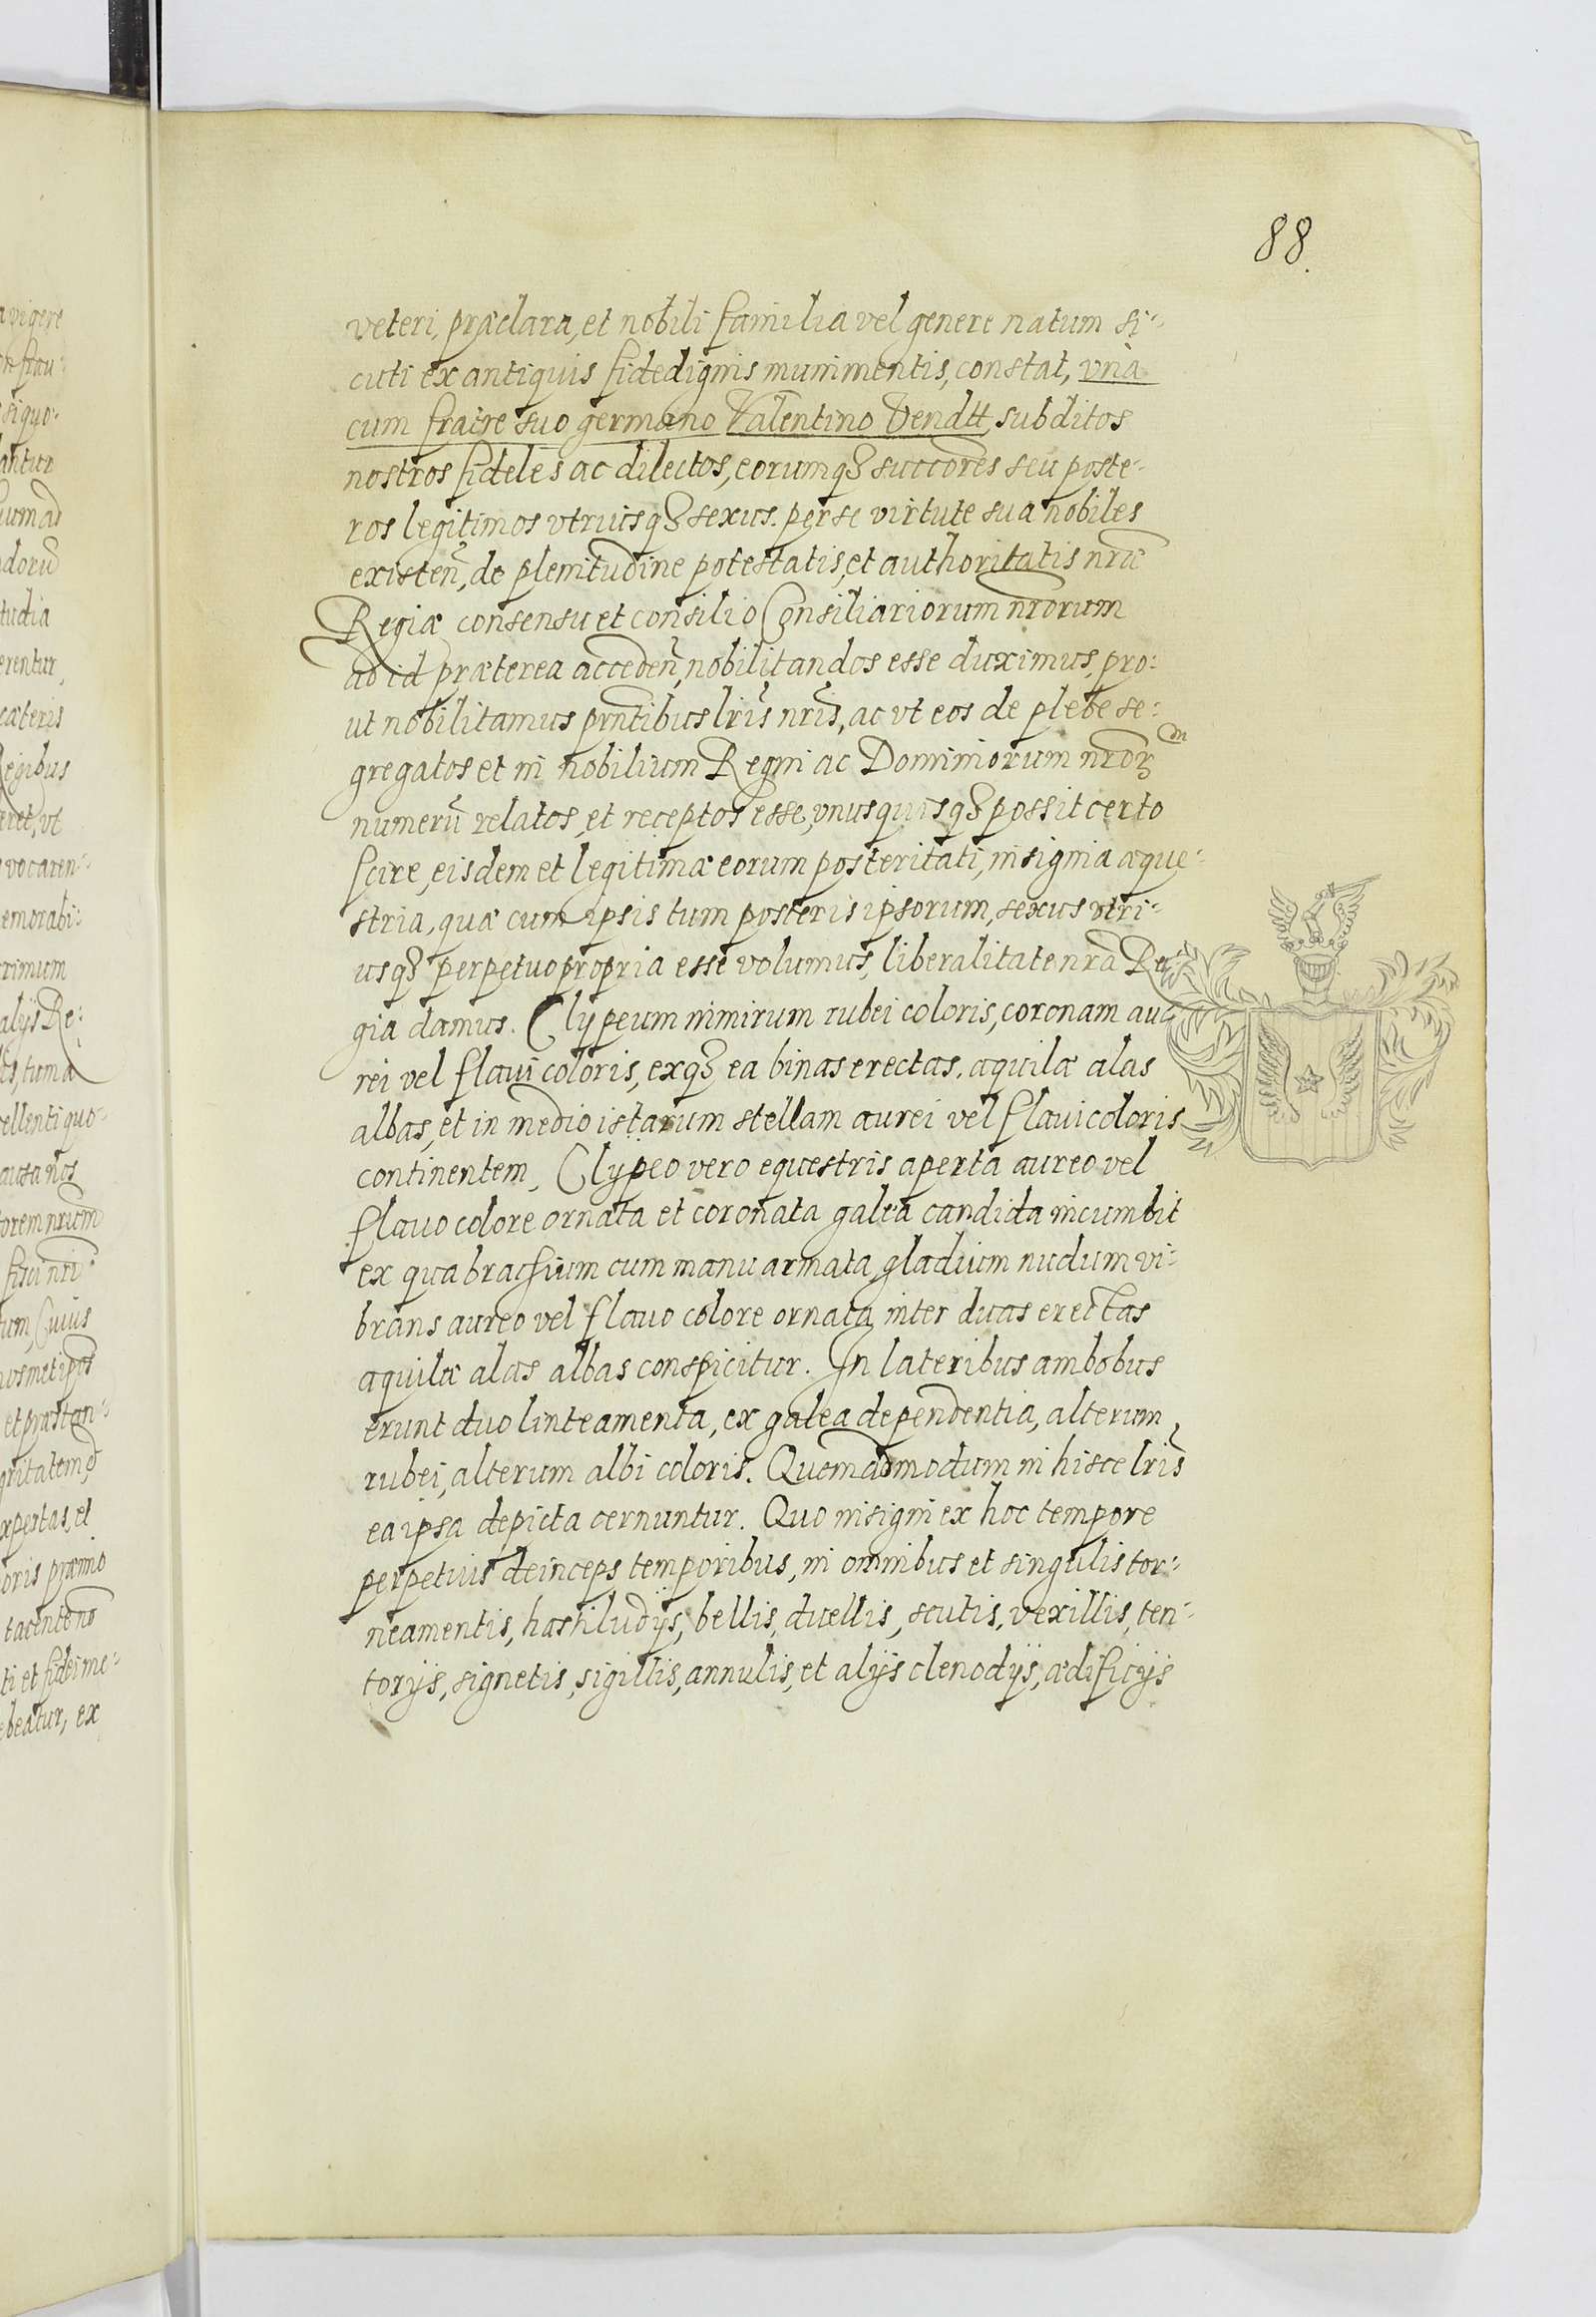 88.
veteri, præclara, et nobili familia vel genere natum si-
cuti ex antiquis fidedignis munimentis, constat, vnà
cum fratre suo germano Valentino Vendtt, subditos
nostros fideles ac dilectos, eorumq3 succōres seu poste-
ros legitimos vtriusq3 sexus. per se virtute sua nobiles
existen̄, de plenitudine potestatis, et authoritatis nr̄æ
Regiæ consensu et consilio Consiliariorum nr̄orum
ad id præterea acceden̄, nobilitandos esse duximus, pro-
ut nobilitamus prn̄tibus lr̄is nr̄is, ac vt eos de plebe se-
gregatos et in nobilium Regni ac Dominiorum nr̄orꝫ
numerū relatos, et receptos esse, vnusquisq3 possit certo
scire, eisdem et legitimæ eorum posteritati, insignia æque-
stria, quæ cum ipsis tum posteris ipsorum, sexus vtri-
usq3 perpetuo propria esse volumus, liberalitate nr̄a Re-
gia damus. Clypeum nimirum rubei coloris, coronam au-
rei vel flaui coloris, exq3 ea binas erectas, aquilæ alas
albas, et in medio istarum stellam aurei vel flaui coloris
continentem, Clypeo vero equestris aperta aureo vel
flauo colore ornata et coronata galea candida incumbit
ex qua brachium cum manu armata gladium nudum vi-
brans aureo vel flauo colore ornata inter duas erectas
aquilæ alas albas conspicitur. In lateribus ambobus
erunt duo linteamenta, ex galea dependentia, alterum
rubei, alterum albi coloris. Quemadmodum in hisce lr̄is
ea ipsa depicta cernuntur. Quo insigni ex hoc tempore
perpetuis deinceps temporibus, in omnibus et singulis tor-
neamentis, hastiludijs, bellis, duellis, scutis, vexillis, ten-
torijs, signetis, sigillis, annulis, et alijs clenodijs, ædificijs